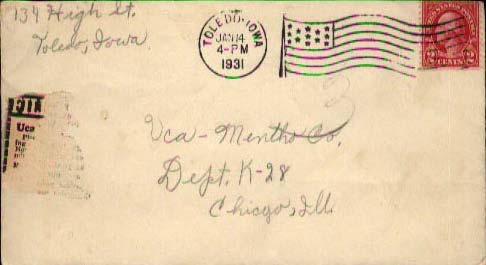 134 High St.
Toledo, Iowa
TOLEDO, IOWA
JAN 14
4-PM
1931
2 CENTS 2
Uca
Vca-Mentho Co.
Dept. K-28
Chicgo, Ill.